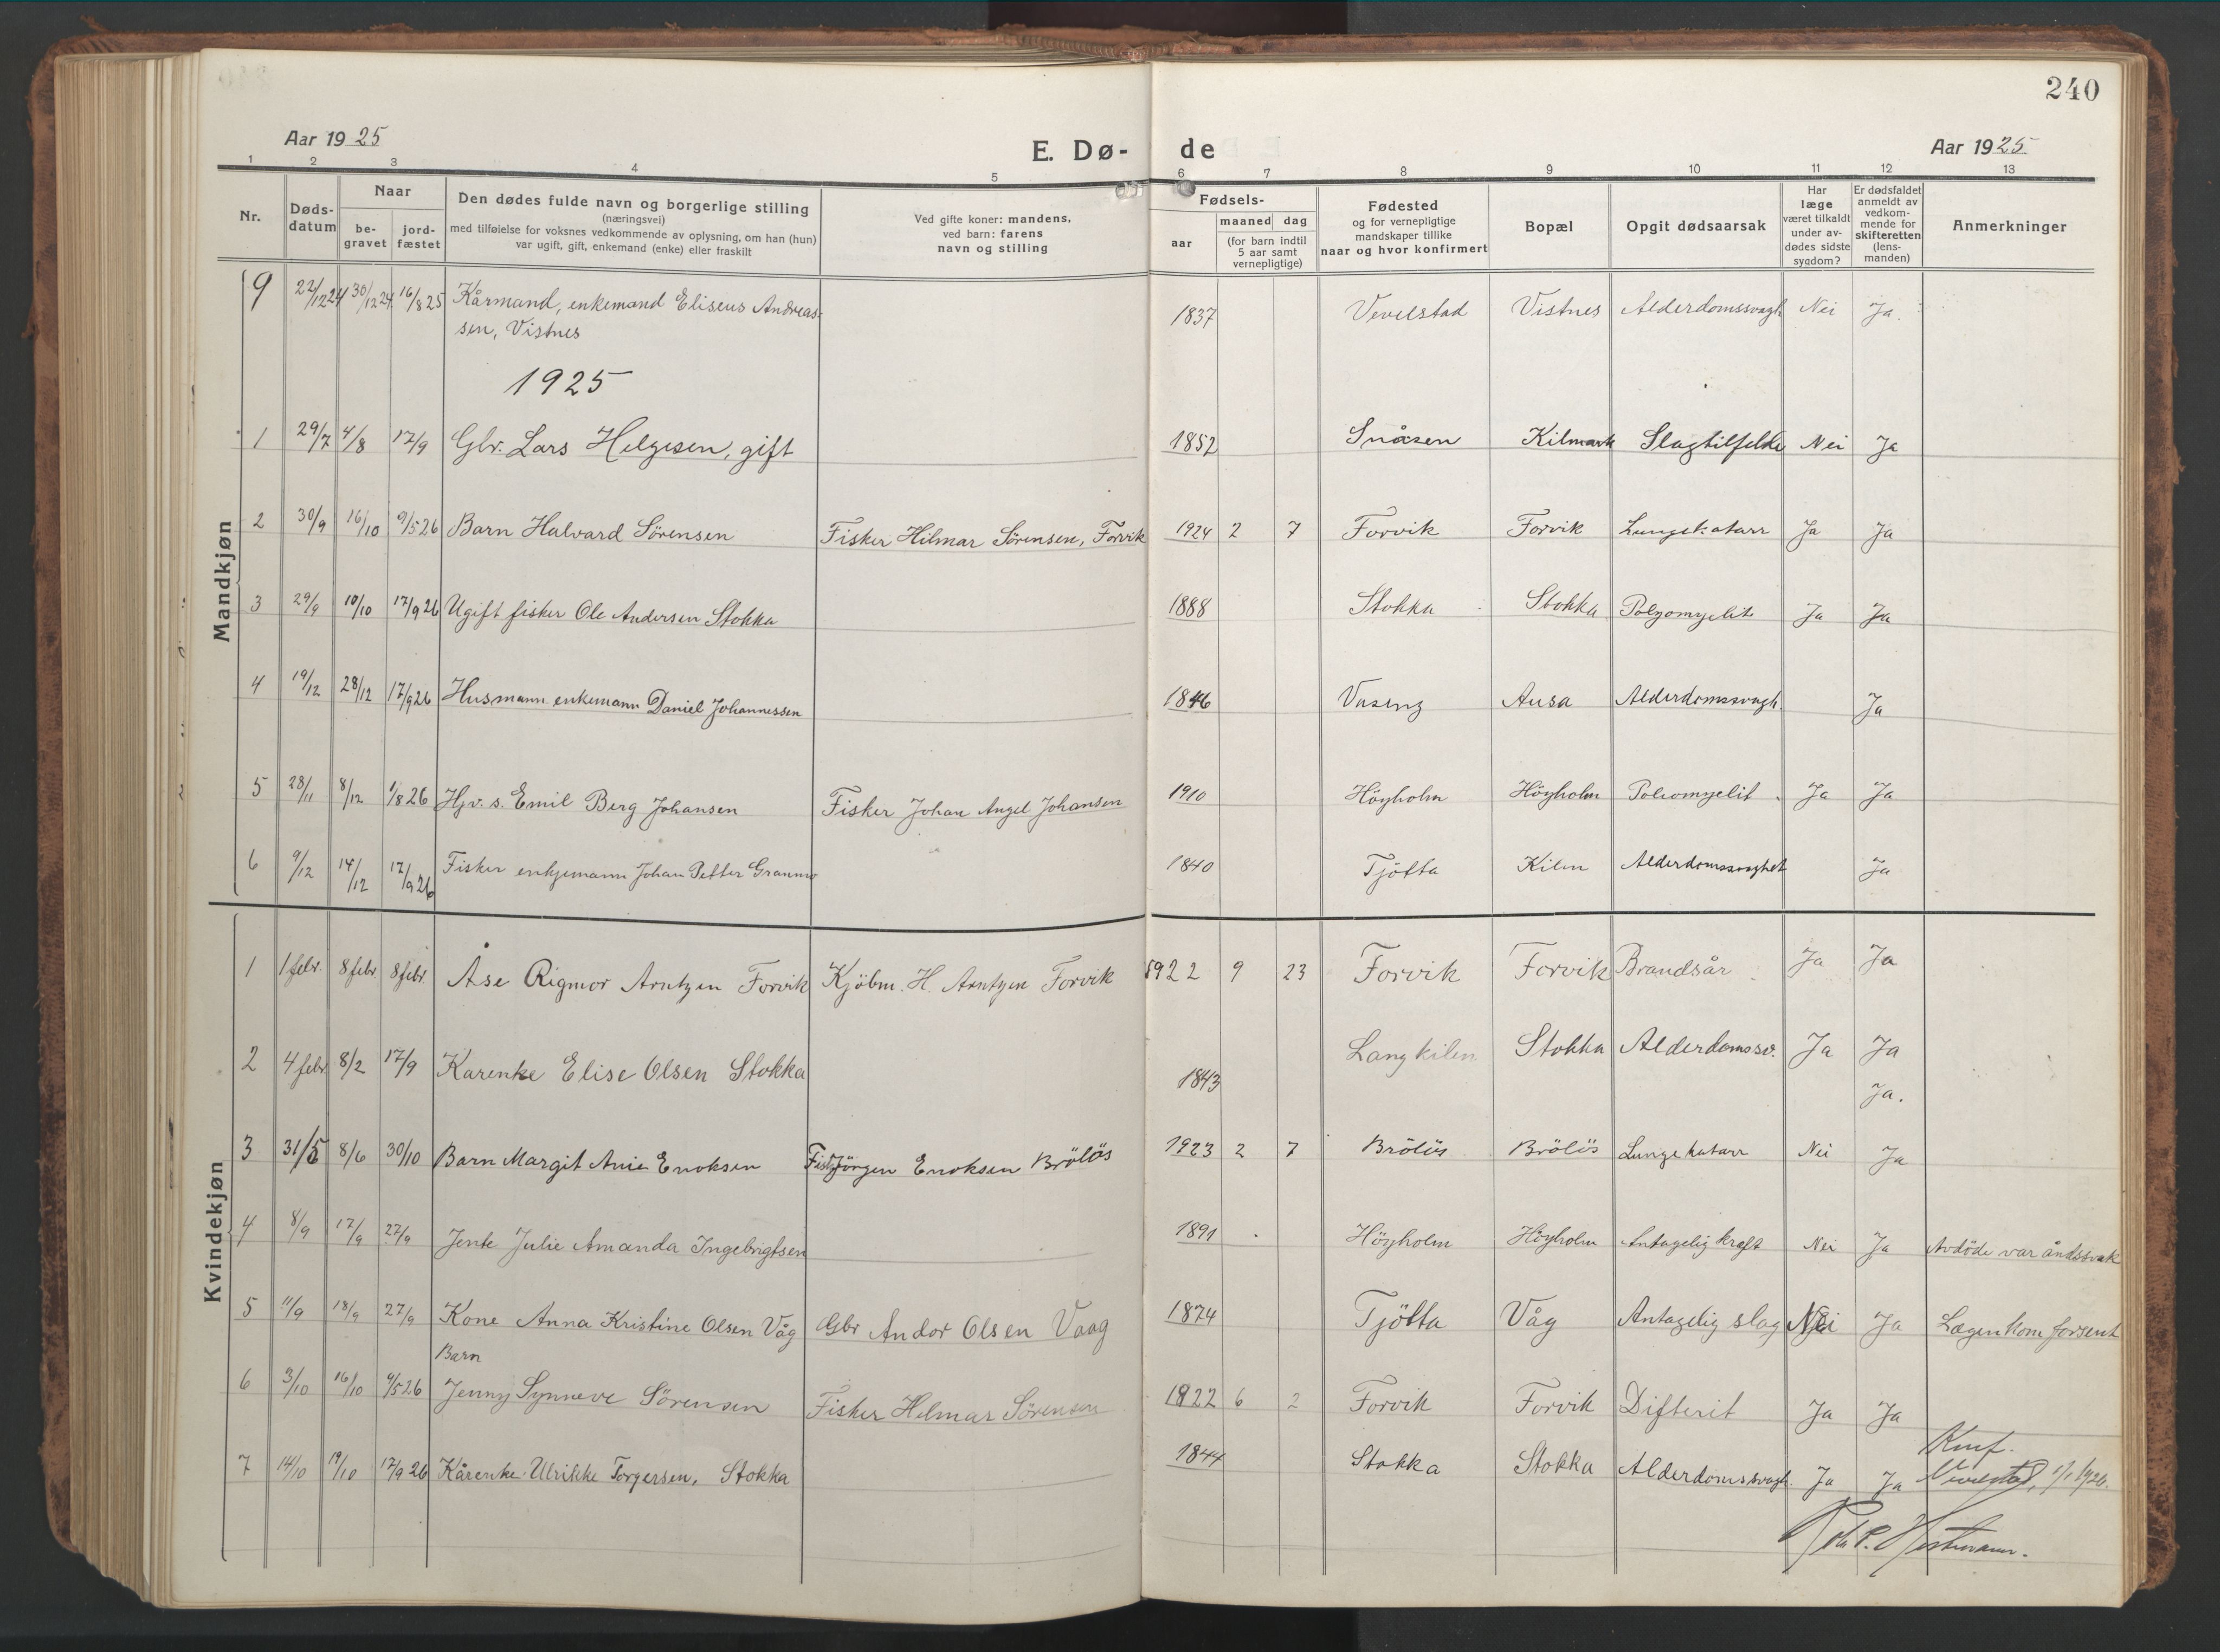 240
Aar 1925
E. Dø- de
Aar 1925
1 2 3 4 5 6 7 8 9 10 11 12 13
Nr.
Døds-
datum
Naar
be-
gravet
jord-
fæstet
Den dødes fulde navn og borgerlige stilling
(næringsvei)
med tilføielse for voksnes vedkommende av oplysning, om han (hun)
var ugift, gift, enkemand (enke) eller fraskilt
Ved gifte koner: mandens,
ved barn: farens
navn og stilling
Fødsels-
aar
maaned dag
(for barn indtil
5 aar samt
vernepligtige)
Fødested
og for vernepligtige
mandskaper tillike
naar og hvor konfirmert
Bopæl
Opgit dødsaarsak
Har
læge
været tilkaldt
under av-
dødes sidste
sygdom?
Er dødsfaldet
anmeldt av
vedkom-
mende for
skifteretten
(lens-
manden)
Anmerkninger
Mandkjøn
9 22/12 24 30/12 24 16/8 25 Kårmand, enkemand Eliseus Andreas- 1837 Vevelstad Vistnes Alderdomssvagh Nei Ja.
sen, Vistnes
1925
1 29/7 4/8 17/9 Gbr. Lars Helgesen, gift 1852 Snåsen Kilmark Slagtilfelde Nei Ja
2 30/9 16/10 9/5 26 Barn Halvard Sörensen Fisker Hilmar Sörensen, Forvik 1924 2 7 Forvik Forvik Lungekatarr Ja Ja
3 29/9 10/10 17/9 26 Ugift fisker Ole Andersen Stokka 1888 Stokka Stokka Polyomyelit Ja Ja
4 19/12 28/12 17/9 26 Husmann enkemann Daniel Johannessen 1846 Ausa Alderdomssvagh. Ja
5 28/11 8/12 1/8 26 Hjv. s. Emil Berg Johansen Fisker Johan Angel Johansen 1910 Höyholm Höyholm Poliomyelit Ja Ja
6 9/12 14/12 17/9 26 Fisker enkjemann Johan Petter Grannmo 1840 Tjötta Kilen Alderdomssvaghet Ja
Kvindekjøn
1 1 febr. 8 febr 8 febr Åse Rigmor Arntzen Forvik Kjöbm. H. Arntzen Forvik 1922 9 23 Forvik Forvik Brandsår Ja Ja
2 4 febr 8/2 17/9 Karenke Elise Olsen Stokka 1843 Langkilen Stokka Alderdomssv. Ja Ja
Ja.
3 31/5 8/6 30/10 Barn Margit Anie Enoksen Fisk. Jörgen Enoksen Brölös 1923 2 7 Brölös Brölös Lungekatarr Nei Ja
4 8/9 17/9 27/9 Jente Julie Amanda Ingebrigtsen 1891 Höyholm Höyholm Antagelig kreft Nei Ja Avdöde var åndssvak
5 11/9 18/9 27/9 Kone Anna Kristine Olsen Våg Gbr Andor Olsen Vaag 1874 Tjötta Våg Antagelig slag Nei Ja Lægen kom forsent
Barn
6 3/10 16/10 9/5 26 Jenny Synneve Sörensen Fisker Hilmar Sörensen 1922 6 2 Forvik Forvik Difterit Ja Ja
7 14/10 19/10 17/9 26 Kårenke Ulrikke Torgersen, Stokka 1844 Stokka Stokka Alderdomssvagh. Ja Ja
Knf.
Vevelstad, 1/1 1926.